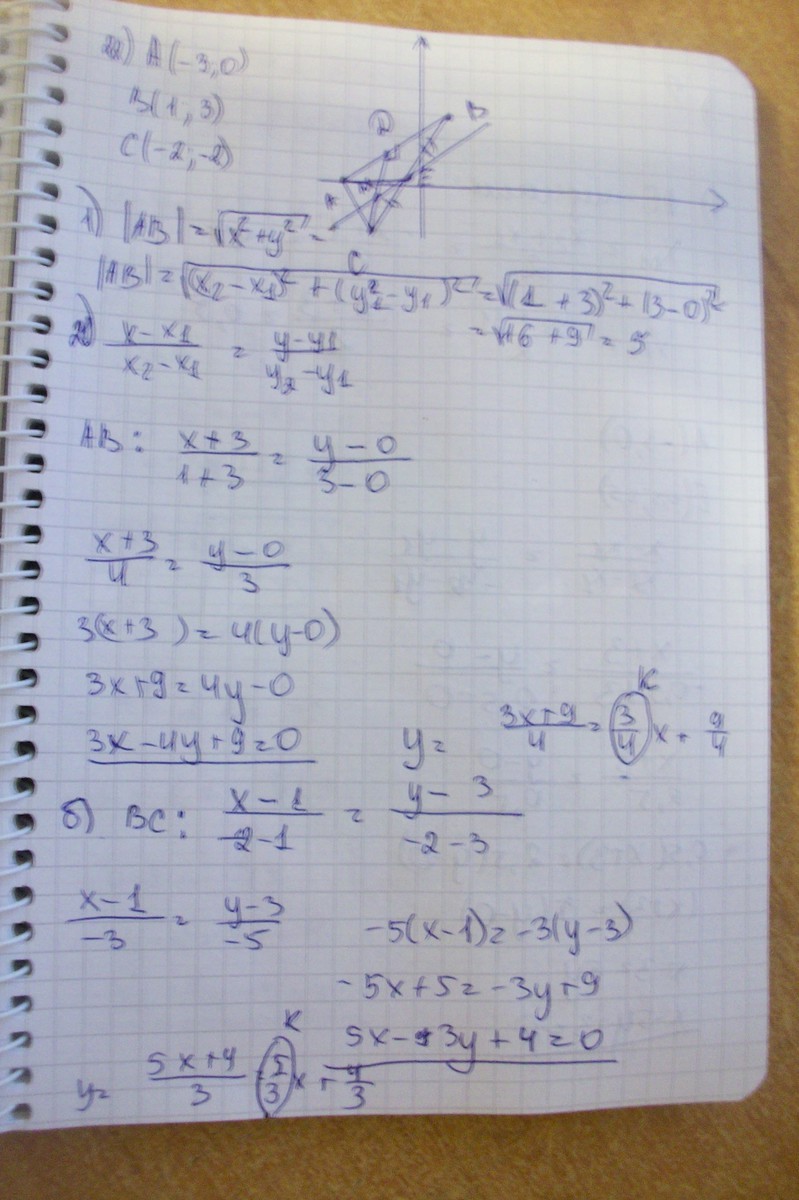 A(-3;0)
B(1;3)
C(-2;-2)
D
B
A
C
1) |AB| = √x²+y² =
|AB| = √(x₂-x₁)² + (y₂-y₁)² = √(1+3)²+(3-0)²
= √16+9 = 5
x-x₁/x₂-x₁ = y-y₁/y₂-y₁
AB: x+3/1+3 = y-0/3-0
x+3/4 = y-0/3
3(x+3) = 4(y-0)
3x+9=4y-0
3x-4y+9=0 y= 3x+9/4 = 3/4 x + 9/4
K
б) BC: x-1/-2-1 = y-3/-2-3
x-1/-3 = y-3/-5 -5(x-1)=-3(y-3)
-5x+5=-3y+9
5x-3y+4=0
K
y= 5x+4/3 = 5/3 x + 4/3